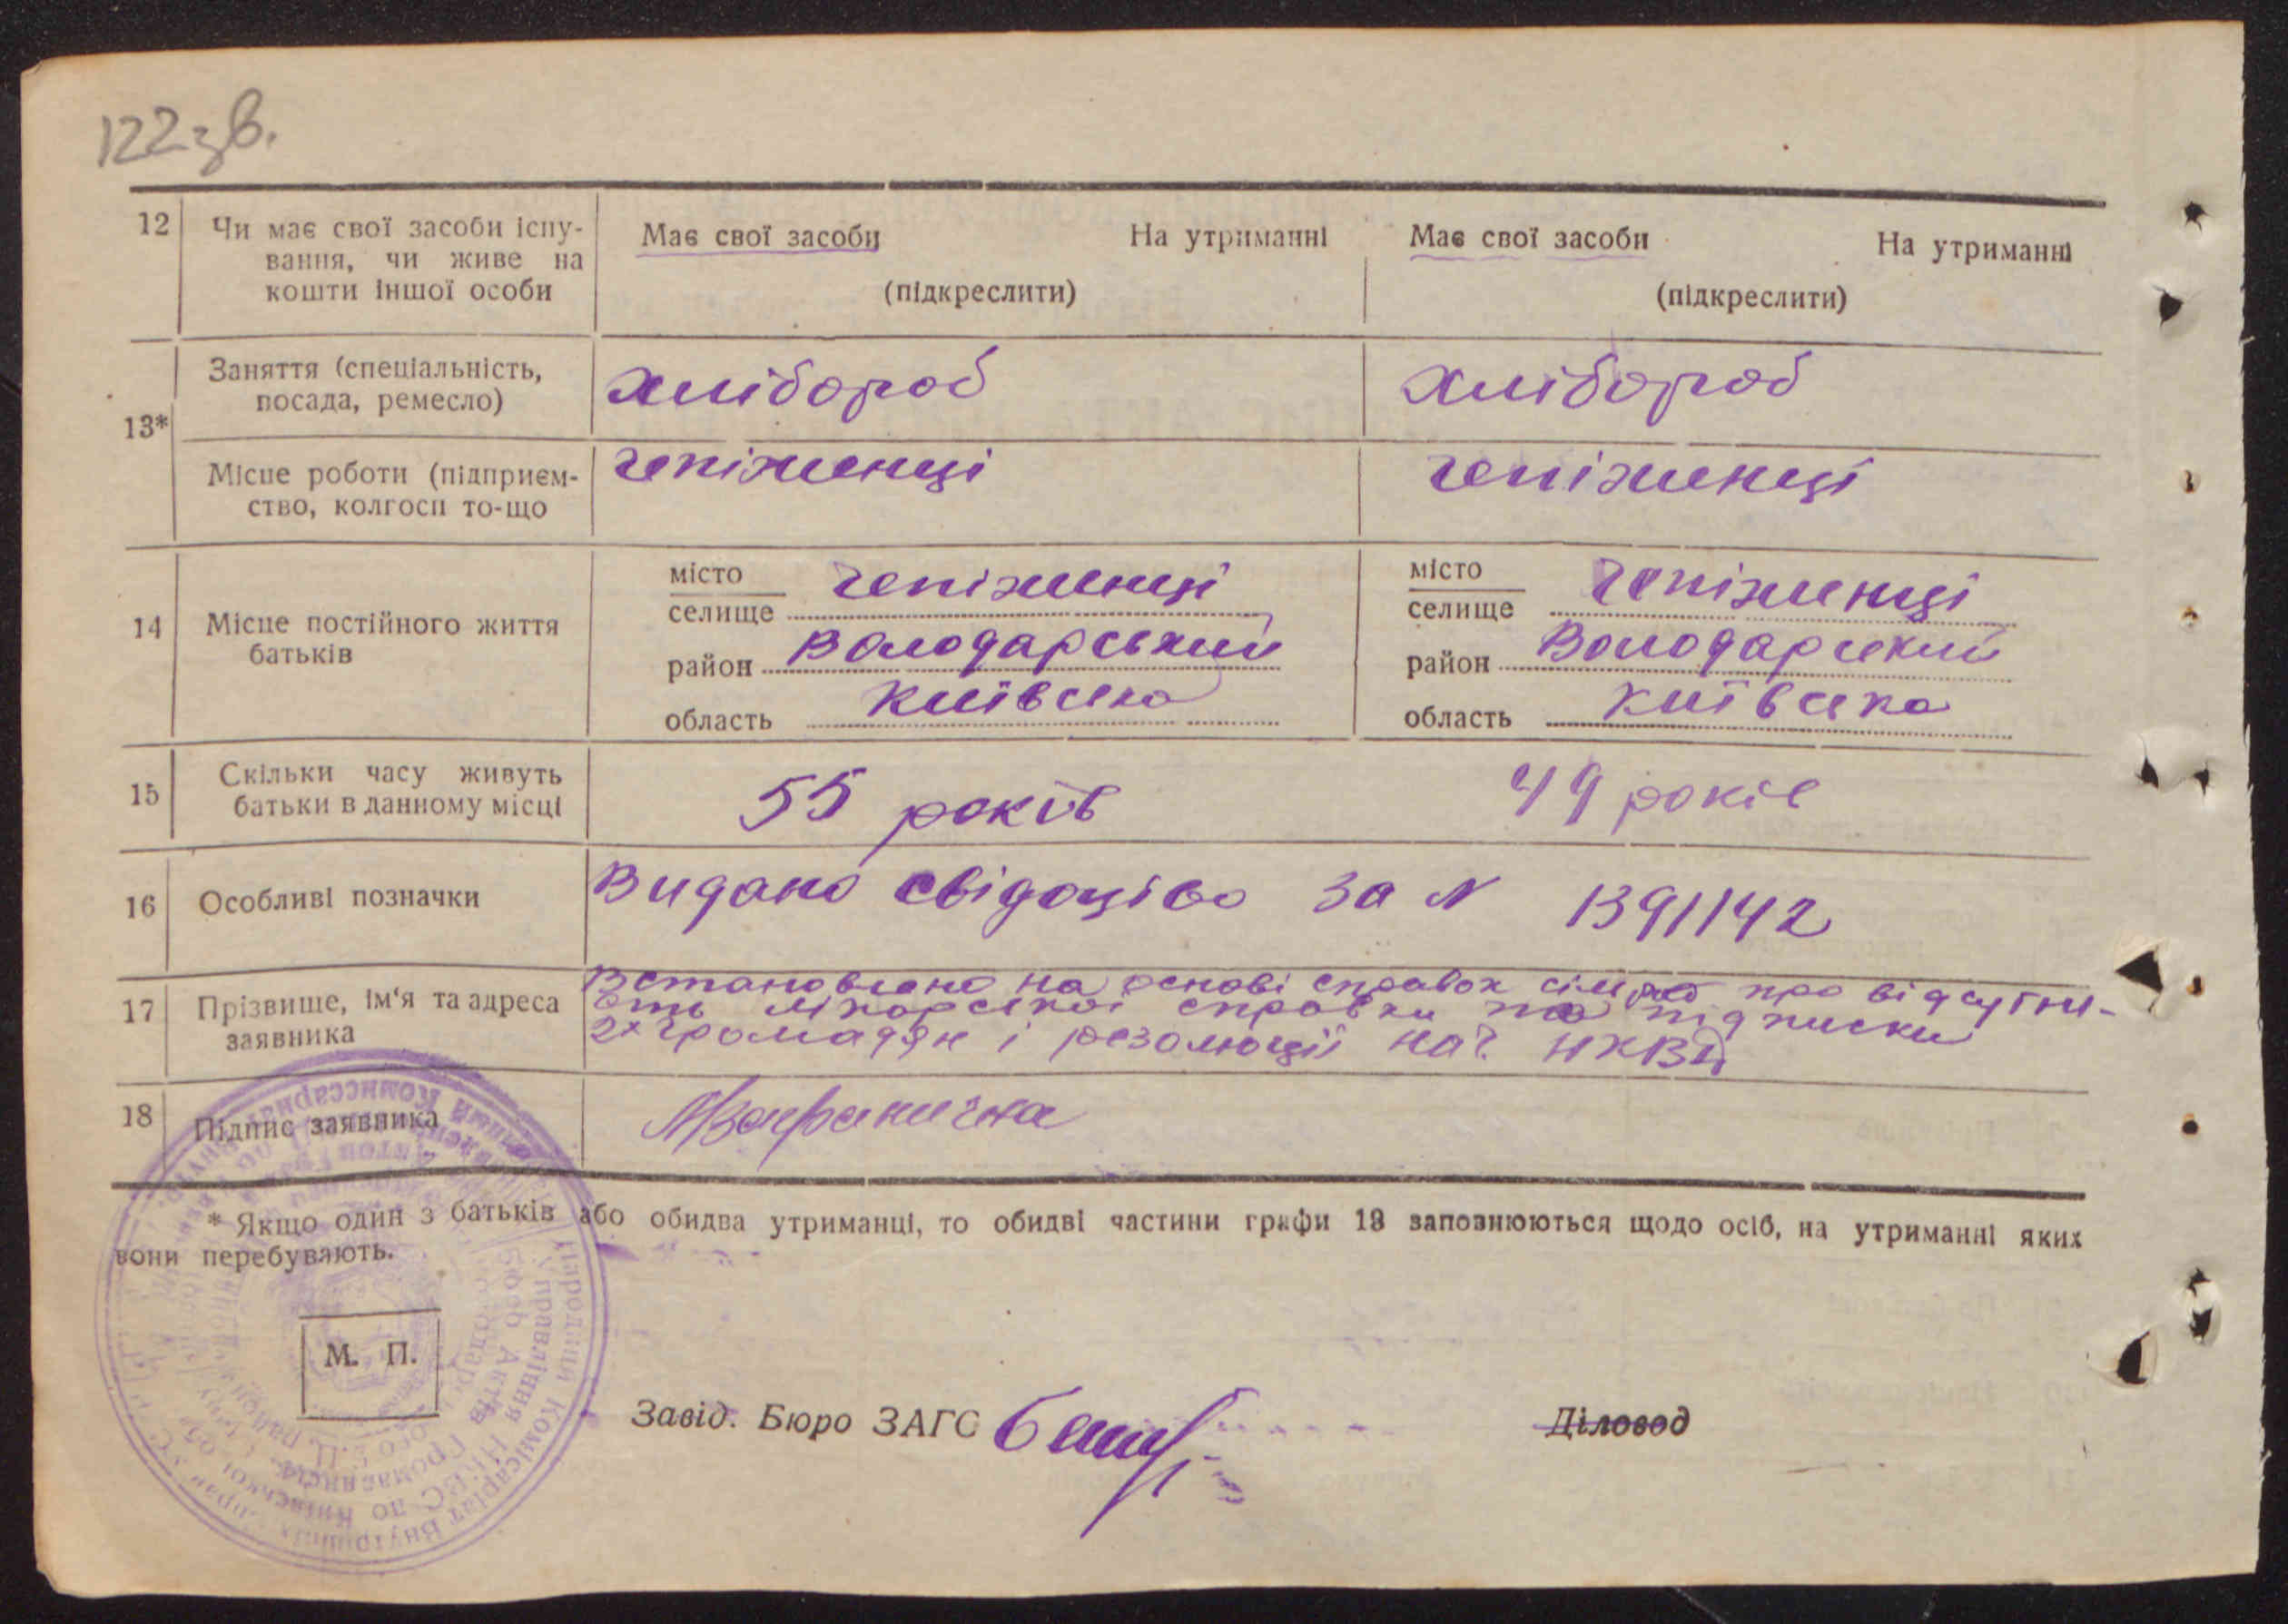 122 зв.
12 Чи має свої засоби існу-
вання, чи живе на
кошти іншої особи
Має свої засоби На утриманні
(підкреслити)
Має свої засоби На утриманні
(підкреслити)
13*
Заняття (спеціальність,
посада, ремесло)
хлібороб
хлібороб
Місце роботи (підприєм-
ство, колгосп то-що
чепіженці
чепіженці
14 Місце постійного життя
батьків
місто
селище чепіженці
район Володарський
область київська
місто
селище чепіженці
район Володарський
область київська
15 Скільки часу живуть
батьки в данному місці
55 років
49 років
16 Особливі позначки
Видано свідоцтво за N 1391142
17 Прізвище, ім'я та адреса
заявника
Встановлено на основі справок сільради про відсутні-
сть лікарської справки та підписки
2х громадян і резолюції нач. НКВД
18 Підпис заявника
* Якщо один з батьків або обидва утриманці, то обидві частини графи 13 заповнюються щодо осіб, на утриманні яких
вони перебувають.
М. П.
Завід. Бюро ЗАГС
Діловод